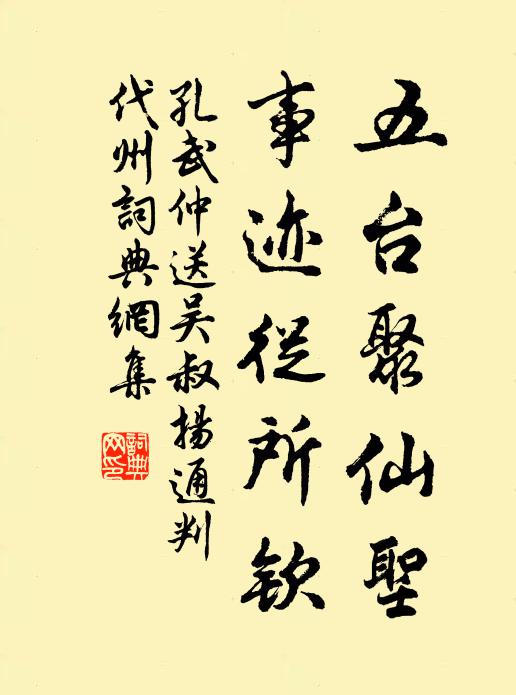 五台聚仙聖
事迹從所欽
孔武仲送吴叔揚通判
代州詞典網集
詞典
网印